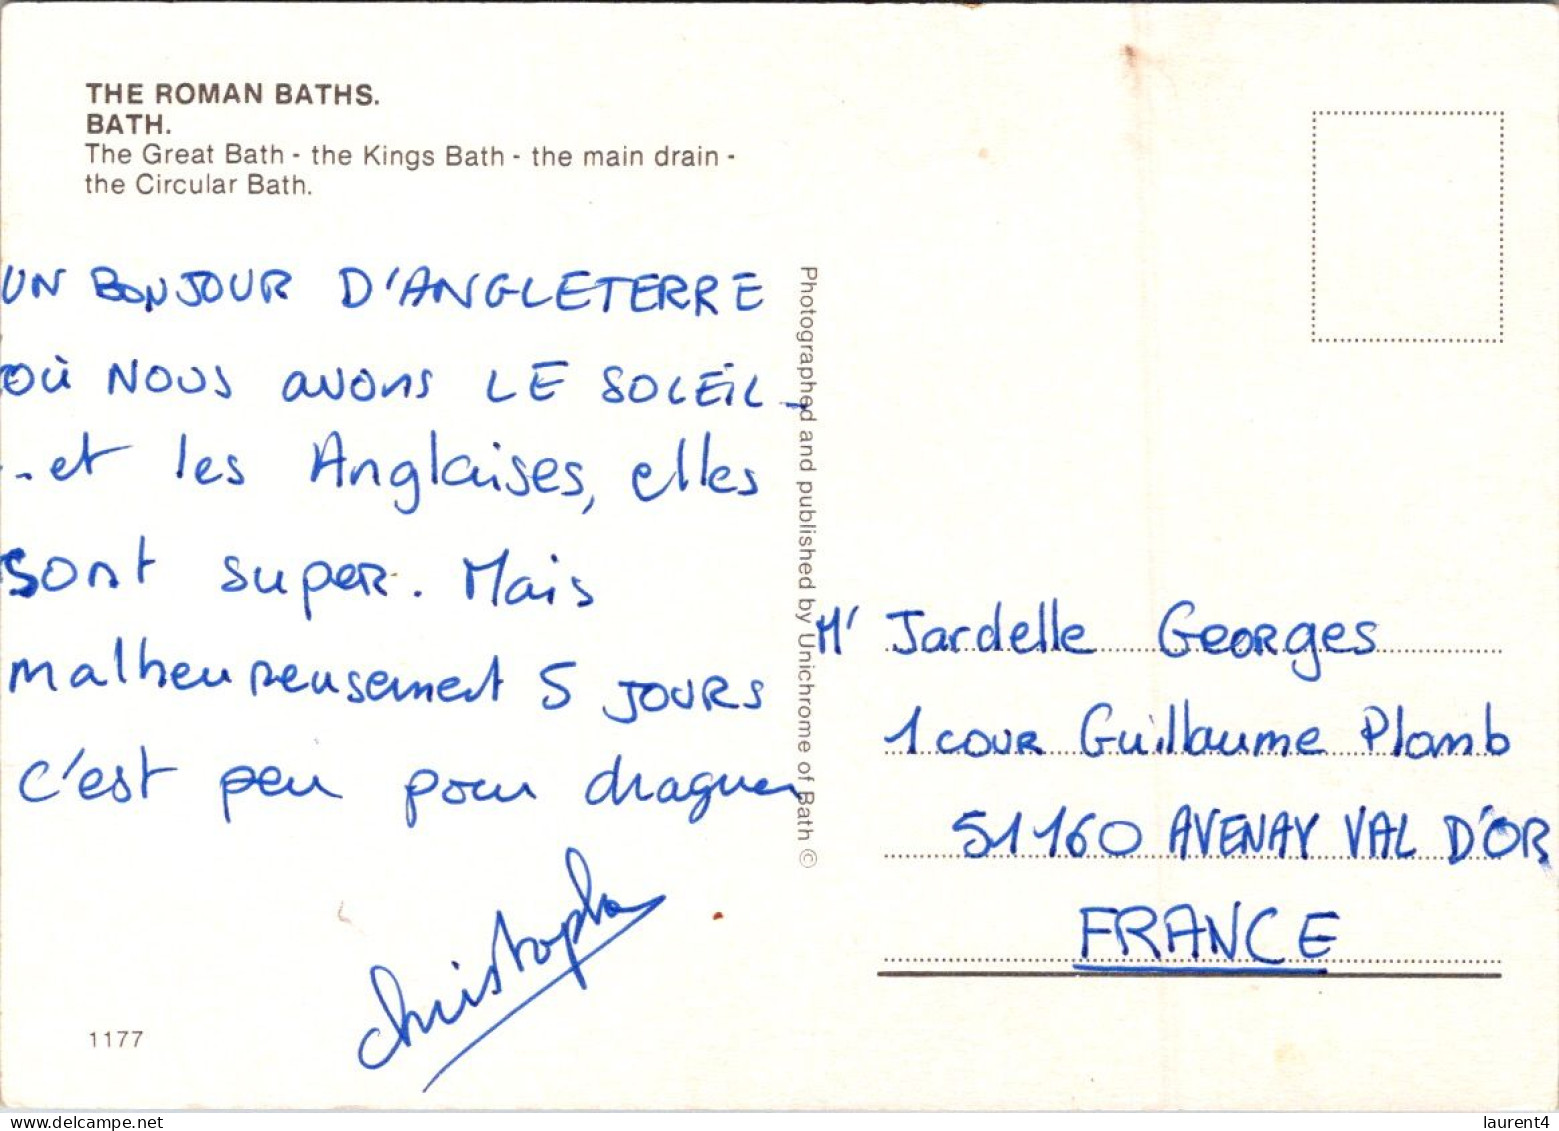 THE ROMAN BATHS.
BATH.
The Great Bath - the Kings Bath - the main drain -
the Circular Bath.
UN BONJOUR D'ANGLETERRE
OÙ NOUS avons LE SOLEIL -
.. et les Anglaises, elles
sont super. Mais
malheureusement 5 JOURS
c'est peu pour draguer
Christophe
1177
Photographed and published by Unichrome of Bath ©
Mr Jardelle Georges
1 cour Guillaume Plomb
51160 AVENAY VAL D'OR
FRANCE
laurent4